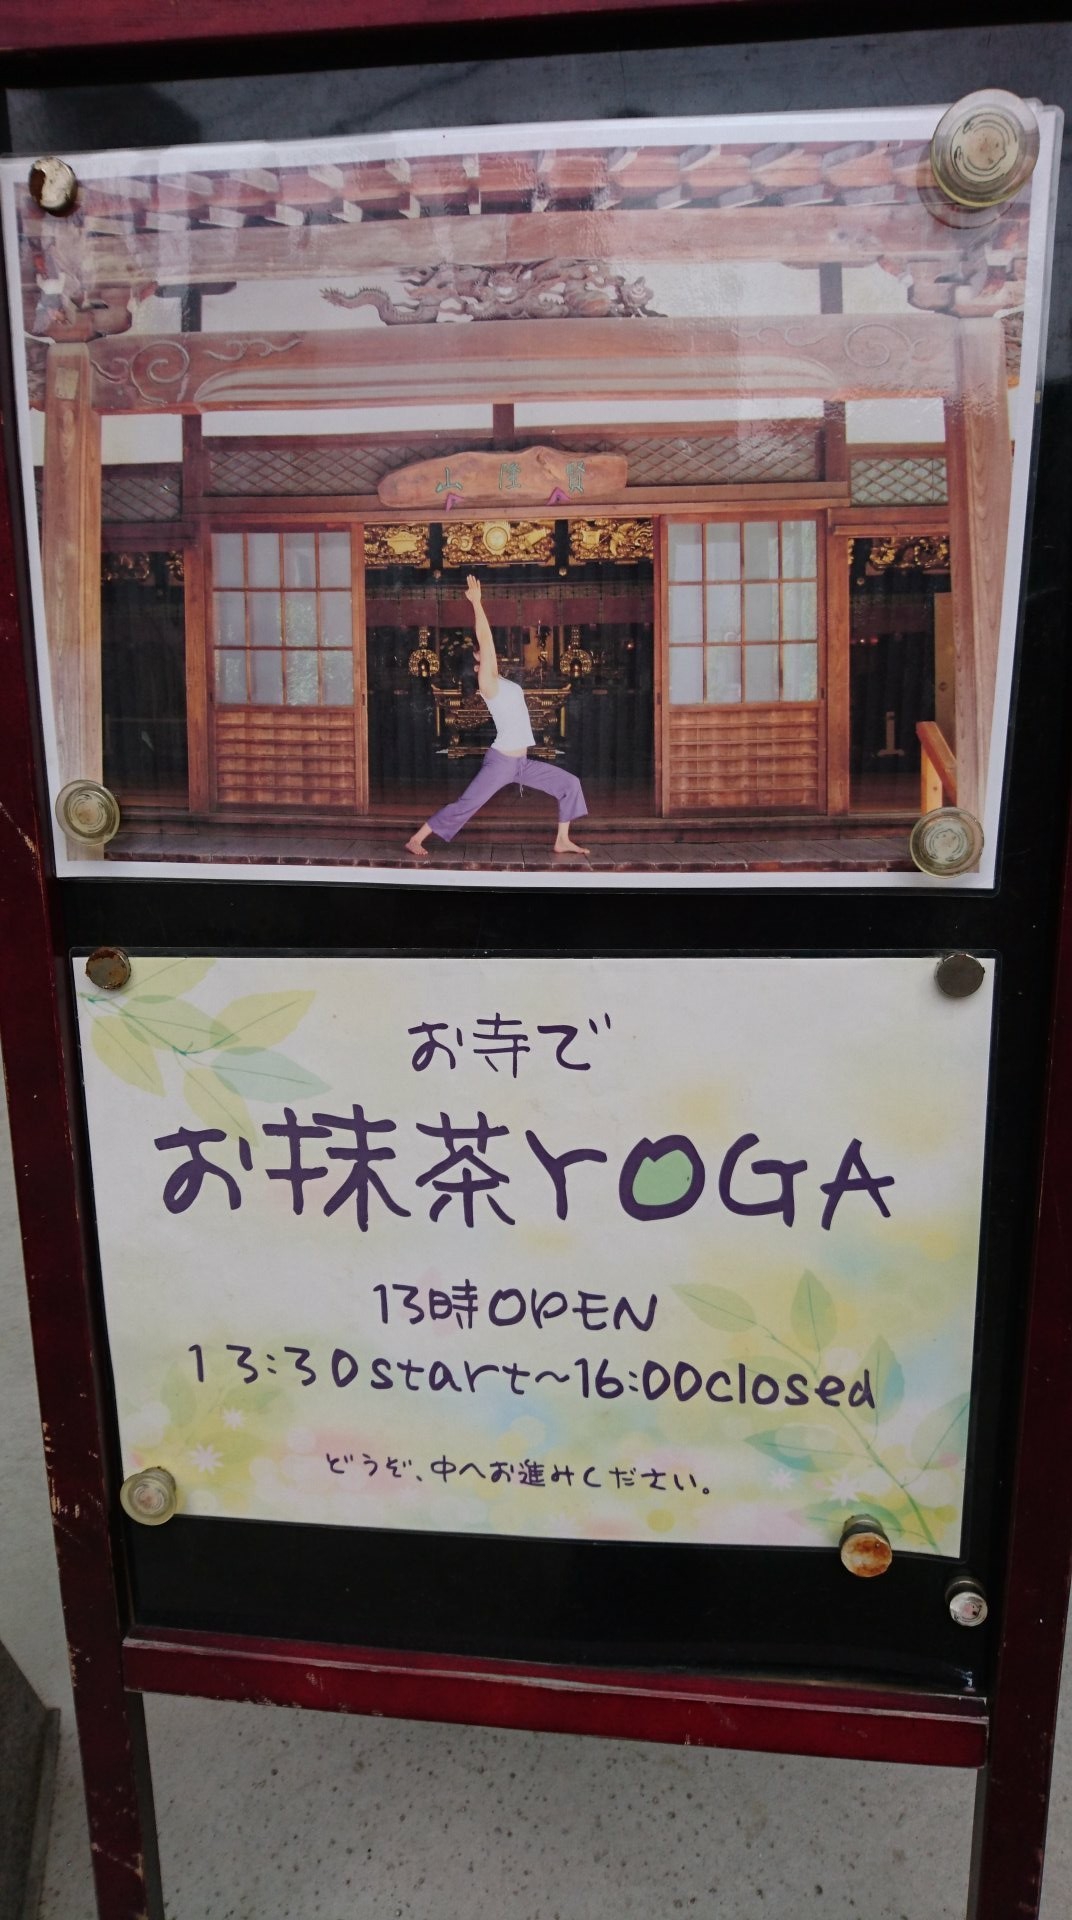 山隆賢
お寺で
お抹茶YOGA
13時OPEN
13:30start〜16:00closed
どうぞ、中へお進みください。